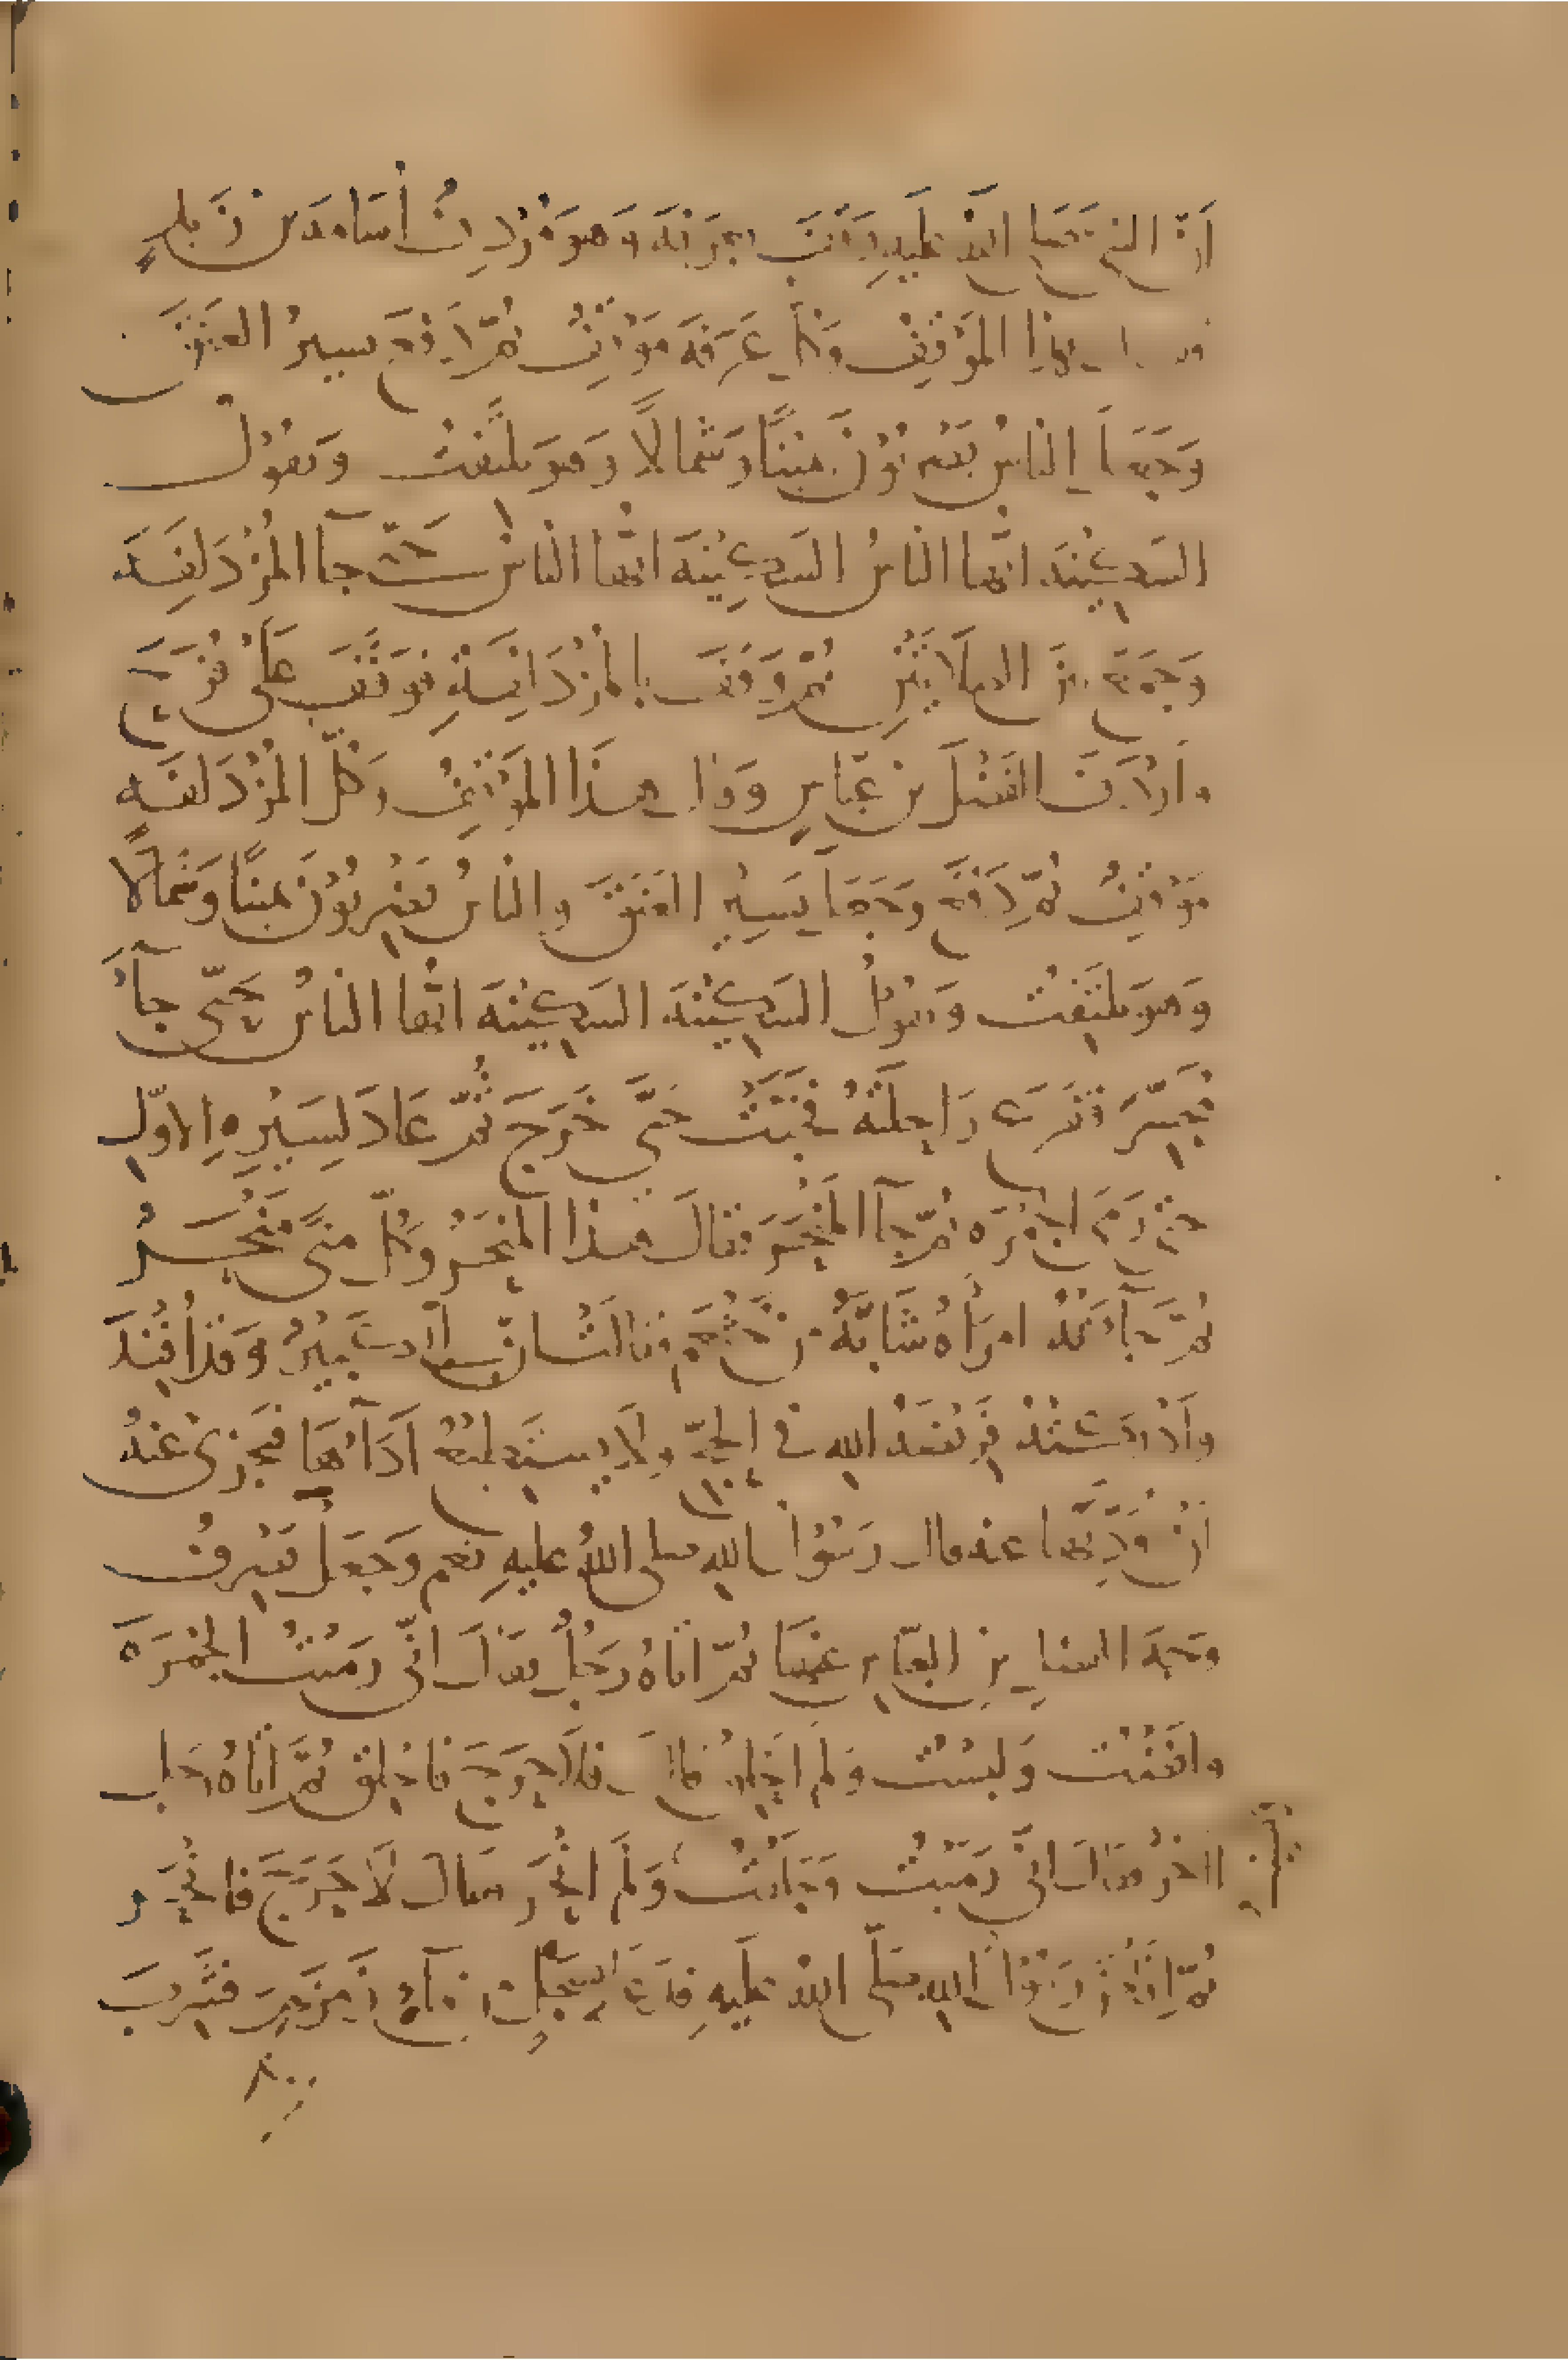 أنّ النبي صلى الله عليه وقف بعرفة وهو مردف أسامة بن زيد
فقال هذا الموقف وكل عرفة موقف ثمّ دفع يسير العنق
وجعل الناس يضربون يمينًا وشمالًا وهو يلتفت ويقول
السكينة ايها الناس السكينة ايها الناس حتّى جآ المزدلفة
وجمع بين الصلاتين ثم وقف بالمزدلفة فوقف على قزح
واردف الفضل بن عباس وقال هذا الموقف وكلّ المزدلفة
موقف ثمّ دفع وجعل يسير العنق والناس يضربون يمينًا وشمالًا
وهو يلتفت ويقول السكينة السكينة ايها الناس حتّى جآء
محسّرا فقرع راحلته فخبّت حتّى خرج ثمّ عاد لسيره الاوّل
حتى رمى الجمره ثمّ جآ المنحر فقال هذا المنحر وكلّ منى منحر
ثمّ جآءته امرأه شابّة من خثعم فقالت ان أبي كبير وقد أفند
وأدركته فريضة الله في الحجّ ولا يستطيع أدآءها فيجزئ عنه
أن أؤدّيها عنه قال رسول الله صلى الله عليه نعم وجعل يصرف
وجه الفضل بن العباس عنها ثمّ اتاه رجل فقال انّي رميت الجمره
وافضت ولبست ولم احلق قال فلا حرج فاحلق ثمّ اتاه رجل
اخر فقال انّي رميت وحلقت ولم انحر فقال لا حرج فانحر
ثمّ افاض رسول الله صلّى الله عليه فدعا بسجل من مآء زمزم فشرب